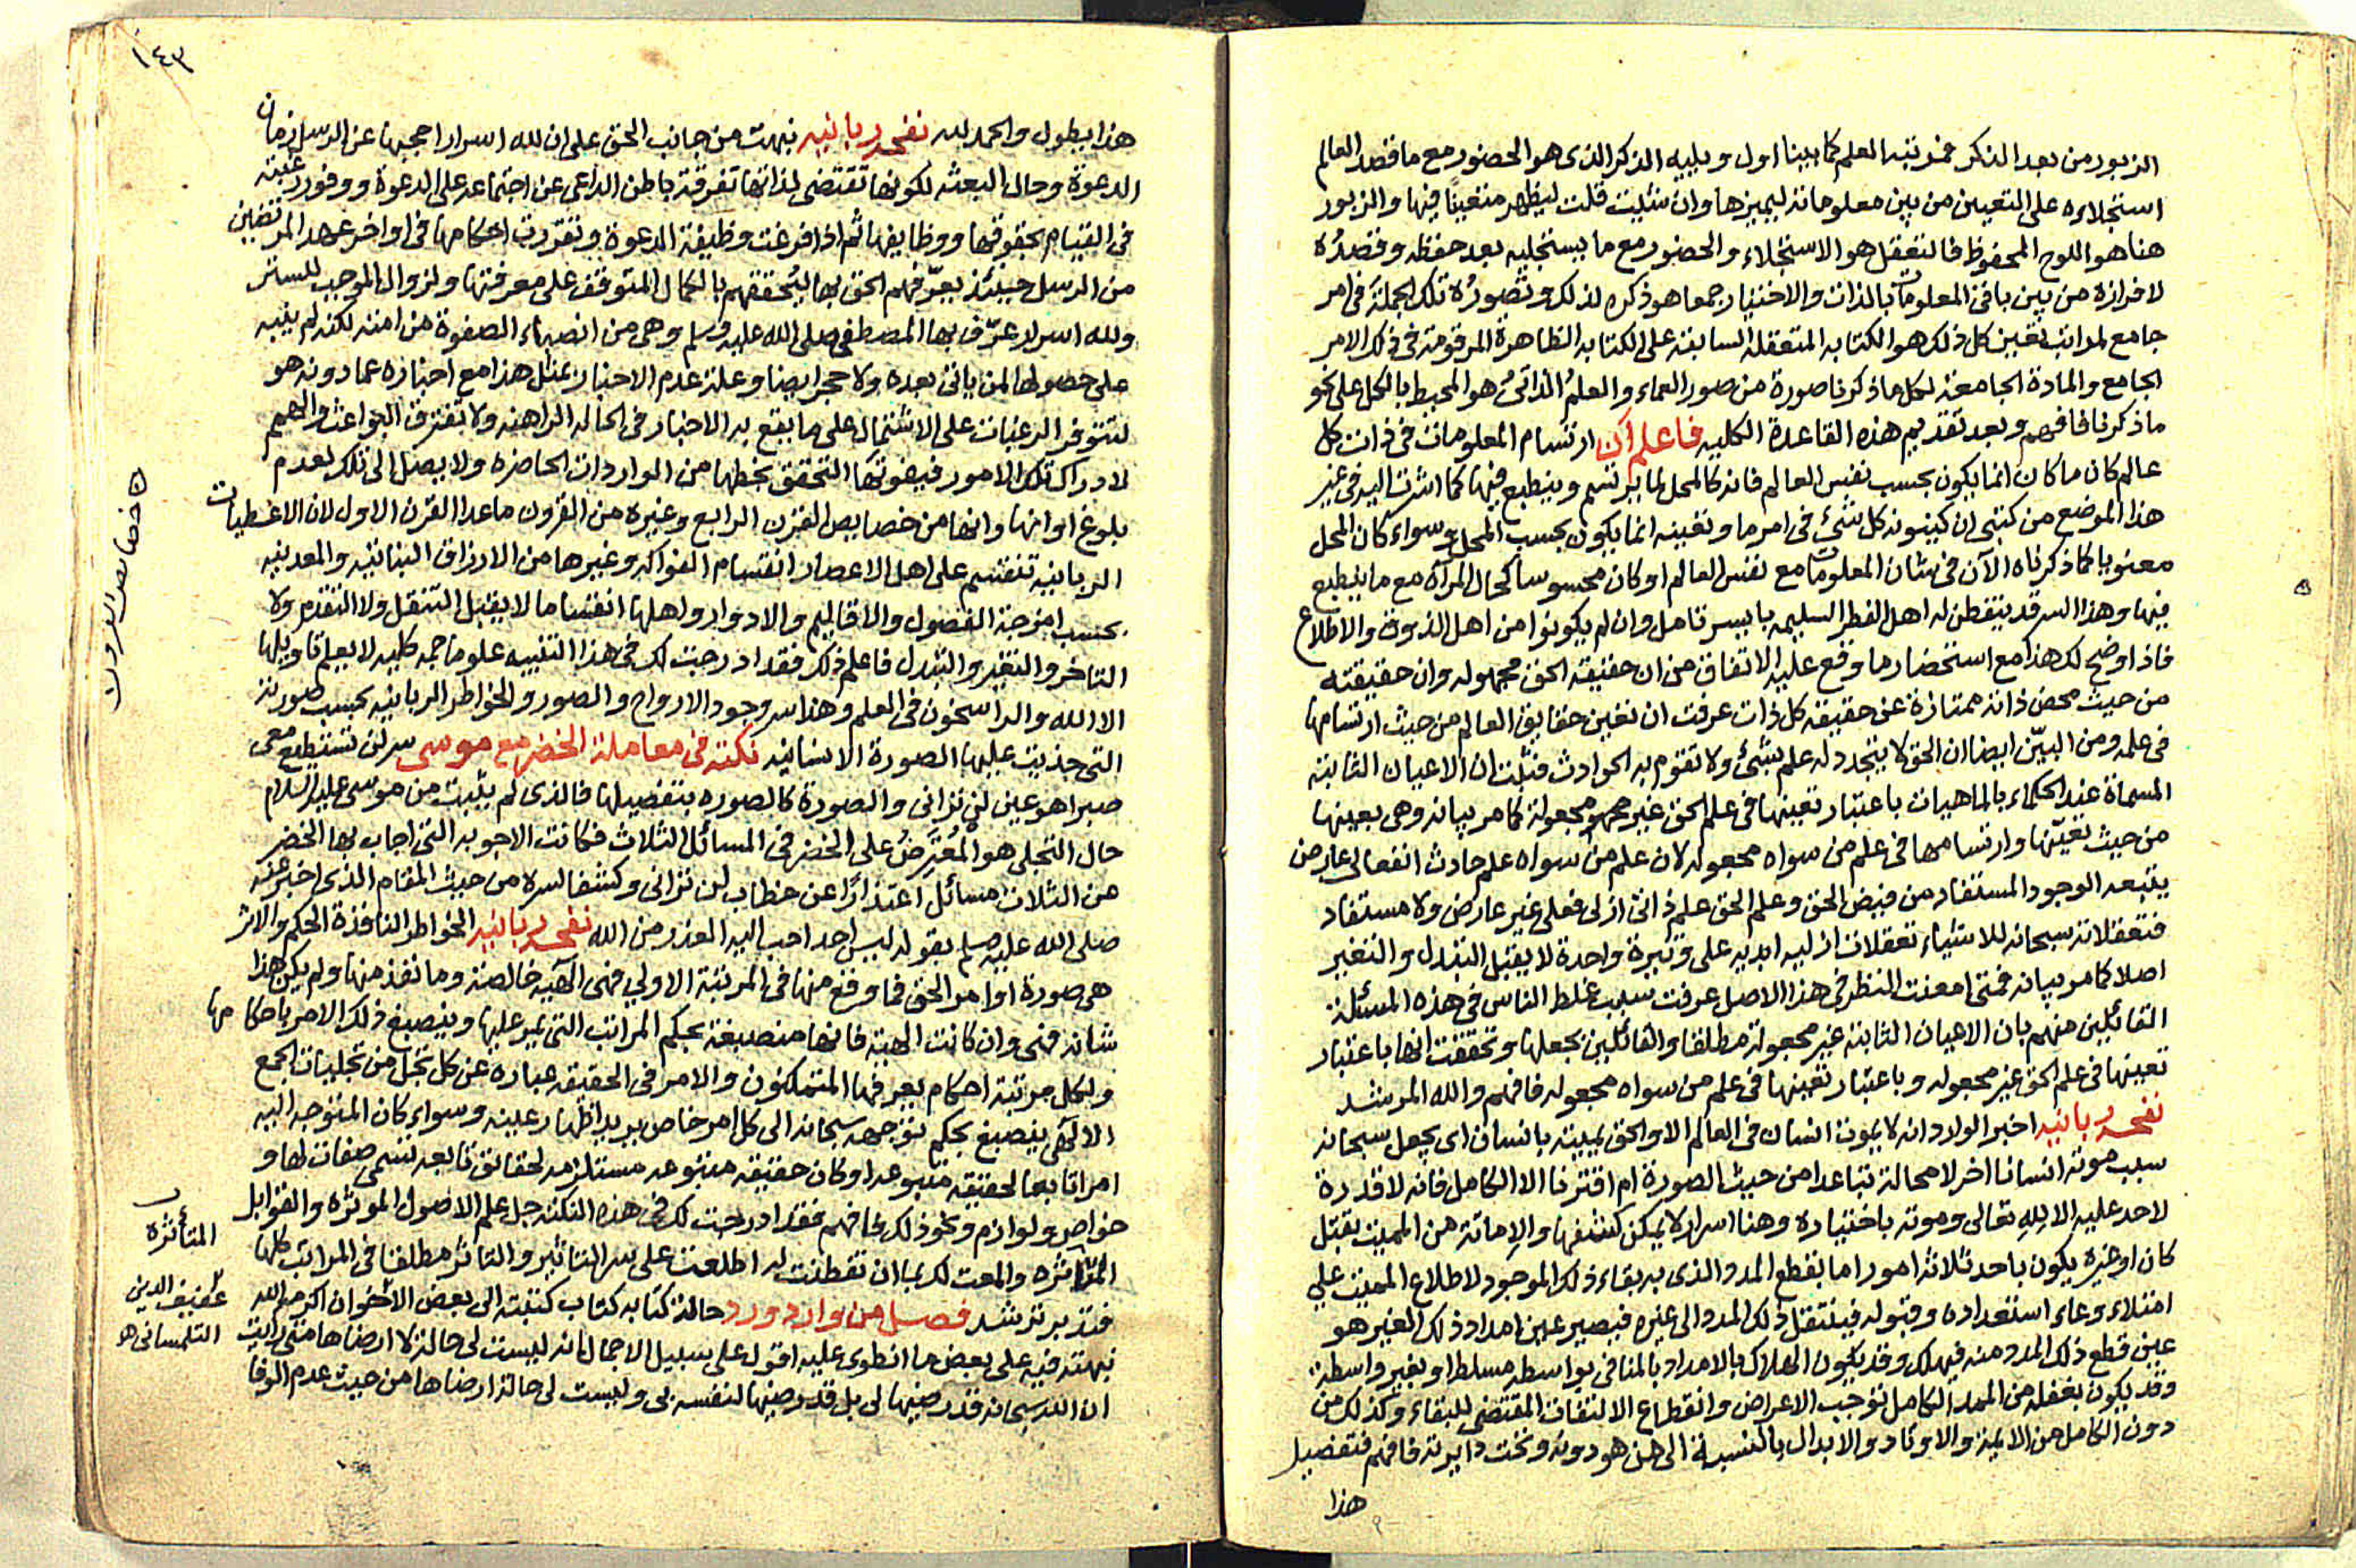 الزبور من بعد الذكر فمرتبة العلم كما بينا اول ويليه الذكر الذى هو الحضور مع ما قصد العالم
استجلاءه على التعيين من بين معلوماته ليميزها وان شئت قلت ليظهر متعينًا فيها والزبور
هنا هو اللوح المحفوظ فالتعقل هو الاستجلاء والحضور مع ما يستجليه بعد حفظه وقصدُه
لافرازه من بين باقى المعلومات بالذات والاختيار جمعا هو ذكره لذلك وتصورُه تلك الجملة فى امر
جامع لمراتب تعين كل ذلك هو الكتابه المتعقلة السابقة على الكتابه الظاهرة المرقومة فى ذلك الامر
الجامع والمادة الجامعة لكل ماذكرنا صورة من صور العماء والعلمُ الذاتىُ هو المحيط بالكل على نحو
ماذكرنا فافهم وبعد تقديم هذه القاعدة الكليه فاعلم ان ارتسام المعلومات فى ذات كل
عالم كان ما كان انما يكون بحسب نفس العالم فانه كالمحل لما يرتسم وينطبع فيها كما اشرت اليه فى غير
هذا الموضع من كتبى ان كينونه كل شئ فى امر ما وتعينه انما يكون بحسب المحل وسواء كان المحل
معنويا كما ذكرناه الآن فى شان المعلومات مع نفس العالم او كان محسوسا كحال المرآة مع ما ينطبع
فيها وهذا السر قد يتفطن له اهل الفطر السليمه بايسر تامل وان لم يكونوا من اهل الذوق والاطلاع
فاذا وضح لك هذا مع استحضار ما وقع عليه الاتفاق من ان حقيقة الحق مجهوله وان حقيقته
من حيث محض ذاته ممتازة عن حقيقه كل ذات عرفت ان تعين حقايق العالم من حيث ارتسامها
فى علمه ومن البيّن ايضا ان الحق لا يتجدد له علم بشئ ولا تقوم به الحوادث فثبت ان الاعيان الثابته
المسماة عند الحكماء بالماهيات باعتبار تعينها فى علم الحق غير مجعولة كما مر بيانه وهى بعينها
من حيث تعيّنها وارتسامها فى علم من سواه مجعوله لان علم من سواه علم حادث انفعالى عارض
يتبعه الوجود المستفاد من فيض الحق وعلم الحق علم ذاتى ازلى فعلى غير عارض ولا مستفاد
فتعقلاته سبحانه للاشياء تعقلات ازليه ابديه على وتيرة واحدة لا يقبل التبدل والتغير
اصلا كما مر بيانه فمتى امعنت النظر فى هذا الاصل عرفت سبب غلط الناس فى هذه المسئلة
القائلين منهم بان الاعيان الثابتة غير مجعولة مطلقا والقائلين بجعلها وتحققت انها باعتبار
تعينها فى علم الحق غير مجعوله وباعتبار تعينها فى علم من سواه مجعوله فافهم والله المرشد
نفحه ربانيه اخبر الوارد انه لا يموت انسان فى العالم الا والحق يميته بانسان اى يجعل سبحانه
سبب موته انسانا اخر لا محالة تباعدا من حيث الصورة ام اقترنا الا الكامل فانه لا قدرة
لاحد عليه الا لله تعالى وموته باختياره وهنا اسرار لا يمكن كشفها والاماتة من المميت بقتل
كان او غيره يكون باحد ثلاثة امور اما بقطع المدد الذى به بقاء ذلك الموجود لاطلاع المميت على
امتلاء وعاء استعداده وقبوله فينتقل ذلك المدد الى غيره فيصير عين امداد ذلك الغير هو
عين قطع ذلك المدد منه فيهلك وقد يكون الهلاك بالامداد بالمنافى بواسطه مسلطا او بغير واسطة
وقد يكون بغفله من الممد الكامل توجب الاعراض وانقطاع الالتفات المقتضى للبقاء وكذلك من
دون الكامل من الايمة والاوتاد والابدال بالنسبة الى من هو دونه وتحت دايرته فافهم فتفصيل
هذا
١٤٣
هذا يطول والحمد لله نفحه ربانيه نبهت من جانب الحق على ان لله اسرارا حجبها عن الرسل زمان
الدعوة وحال البعثه لكونها تقتضى لذاتها تفرقة باطن الداعى عن اجتماعه على الدعوة ووفور رغبته
فى القيام بحقوقها ووظايفها ثم اذا فرغت وظيفة الدعوة وتقررت احكامها فى اواخر عهد المرتضين
من الرسل حينئذ يعرّفهم الحق بها لتحققهم بالكمال المتوقف على معرفتها ولزوال الموجب للستر
ولله اسرار عرّف بها المصطفى صلى الله عليه وسلم وهى من انصباء الصفوة من امته لكنه لم ينبه
على حصولها لمن ياتى بعده ولا حجر ايضا وعلة عدم الاخبار بمثل هذا مع اخباره عما دونه هو
لتتوفر الرغبات على الاشتمال على ما يقع به الاخبار فى الحاله الراهنه ولا تفترق البواعث والهمم
لادراك تلك الامور فيفوتها التحقق بحظها من الواردات الحاضره ولا يصل الى تلك لعدم
بلوغ اوانها وانها من خصايص القرن الرابع وغيره من القرون ماعدا القرن الاول لان الاعطيات
الربانيه تنقسم على اهل الاعصار انقسام الفواكه وغيرها من الارزاق النباتيه والمعدنيه
بحسب امزجة الفصول والاقاليم والادوار واهلها انقساما لا يقبل التنقل ولا التقدم ولا
التاخر والتغير والتبدل فاعلم ذلك فقد ادرجت لك فى هذا التنبيه علوما جمه كليه لا يعلم تاويلها
الا الله والراسخون فى العلم وهذا سر وجود الارواح والصور والخواطر الربانيه بحسب صورته
التى حذيت عليها الصورة الانسانيه نكته فى معاملة الخضر مع موسى سر لن تستطيع معى
صبرا هو عين لن ترانى والصورة كالصوره بتفصيلها فالذى لم يثبت من موسى عليه السلام
حال التجلى هو المُعتَرِضُ على الخضر فى المسائل الثلاث فكانت الاجوبه التى اجاب بها الخضر
عن الثلاث مسائل اعتذارًا عن خطاب لن ترانى وكشفا لسره من حيث المقام الذى اخبر عنه
صلى الله عليه وسلم بقوله ليس احد احب اليه العذر من الله نفحه ربانيه الخواطر النافذة الحكم والاثر
هى صورة اوامر الحق فما وقع منها فى المرتبة الاولى فهى آلهيه خالصة وما نفذ منها ولم يكن هذا
شانه فهى وان كانت الهية فانها منصبغة بحكم المراتب التى يمر عليها وينصبغ ذلك الامر باحكامها
ولكل مرتبة احكام يعرفها المتمكنون والامر فى الحقيقه عباره عن كل تجل من تجليات الجمع
الالآهى ينصبغ بحكم توجهه سبحانه الى كل امر خاص يريد اظهار عينه وسواء كان المتوجه اليه
امرا تابعا لحقيقه متبوعه او كان حقيقه متبوعه مستلزمه لحقائق تابعه تسمى صفات لها و
خواص ولوازم ونحو ذلك فافهم فقد ادرجت لك فى هذه النكته جل علم الاصول الموثره والقوابل
المتاثره والمعت لك بما ان تفطنت له اطلعت على سر التاثير والتاثر مطلقا فى المراتب كلها
فتدبر ترشد فصل من وارد ورد حالة كتابه كتاب كتبته الى بعض الاخوان اكرمه الله
نبهته فيه على بعض ما انطوى عليه اقول على سبيل الاجمال انه ليست لى حالة لا ارضاها متى رايت
ان الله سبحانه قد رضيها لى بل قد رضيها لنفسه بى وليست لى حالة ارضاها من حيث عدم الوفا
خصايص القرون
المتأثرة
عفيف الدين
التلمسانى هو